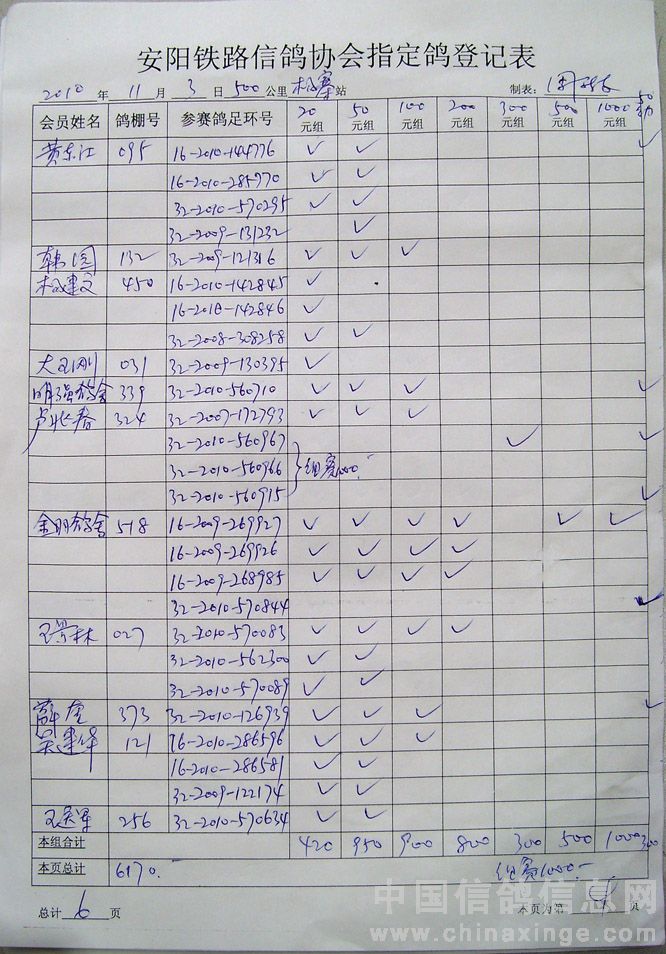 安阳铁路信鸽协会指定鸽登记表
2010 年 11 月 3 日 500 公里 站 制表：
会员姓名 鸽棚号 参赛鸽足环号 20元组 50元组 100元组 200元组 300元组 500元组 1000元组 50
黄东江 095 16-2010-144776 ✓ ✓ ✓
16-2010-285770 ✓ ✓
32-2010-570295 ✓ ✓
32-2009-131232 ✓
韩园 132 32-2009-121316 ✓ ✓ ✓
450 16-2010-142845 ✓
16-2010-142846 ✓
32-2008-308258 ✓ ✓
031 32-2009-130395 ✓
明强鸽舍 339 32-2010-560710 ✓ ✓ ✓ ✓
324 32-2007-172793 ✓ ✓ ✓ ✓
32-2010-560967 ✓ ✓
32-2010-560966 组赛1000.-
32-2010-560915 ✓
金明鸽舍 518 16-2009-269927 ✓ ✓ ✓ ✓ ✓ ✓
16-2009-269926 ✓ ✓ ✓ ✓
16-2009-268985 ✓ ✓ ✓ ✓
32-2010-570844 ✓
王景林 027 32-2010-570083 ✓ ✓ ✓ ✓
32-2010-562300 ✓ ✓
32-2010-570089 ✓ ✓
373 32-2010-126939 ✓ ✓ ✓ ✓
吴建华 121 16-2010-286596 ✓ ✓ ✓
16-2010-286581 ✓ ✓
32-2009-122174 ✓ ✓
256 32-2010-570634 ✓ ✓
本组合计 420 950 900 800 300 500 1000 300
本页总计 6170.- 组赛1000.-
总计 6 页 本页为第 页
中国信鸽信息网
www.chinaxinge.com